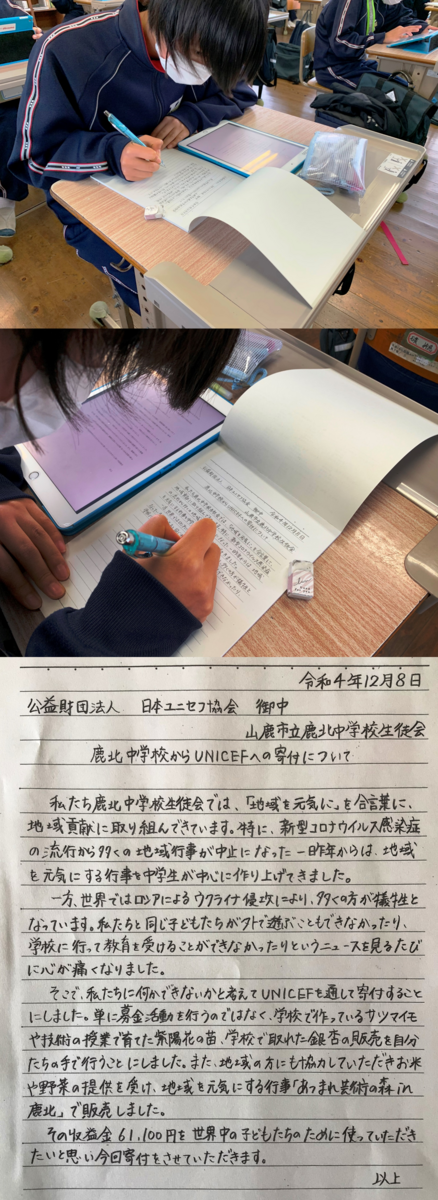 令和4年12月8日
公益財団法人　日本ユニセフ協会　御中
山鹿市立鹿北中学校生徒会
鹿北中学校からUNICEFへの寄付について
私たち鹿北中学校生徒会では、「地域を元気に」を合言葉に、
地域貢献に取り組んできています。特に、新型コロナウイルス感染症
の流行から多くの地域行事が中止になった一昨年からは、地域
を元気にする行事を中学生が中心に作り上げてきました。
一方、世界ではロシアによるウクライナ侵攻により、多くの方が犠牲と
なっています。私たちと同じ子どもたちが外で遊ぶこともできなかったり、
学校に行って教育を受けることができなかったりというニュースを見るたび
に心が痛くなりました。
そこで、私たちに何かできないかと考えてUNICEFを通して寄付すること
にしました。単に募金活動を行うのではなく、学校で作っているサツマイモ
や技術の授業で育てた紫陽花の苗、学校で取れた銀杏の販売を自分
たちの手で行うことにしました。また、地域の方にも協力していただきお米
や野菜の提供を受け、地域を元気にする行事「あつまれ芸術の森in
鹿北」で販売しました。
その収益金61,100円を世界中の子どもたちのために使っていただき
たいと思い今回寄付をさせていただきます。
以上